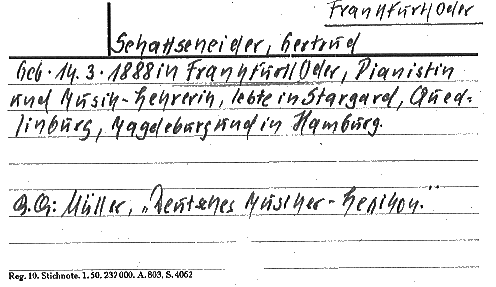 Frankfurt/Oder
Schattschneider, Gertrud
Geb. 14.3.1888 in Frankfurt/Oder, Pianistin
und Musik-Lehrerin, lebte in Stargard, Qued-
linburg, Magdeburg und in Hamburg.
Müller, „Deutsches Musiker-Lexikon."
Reg. 10. Stichnote. 1. 50. 237 000. A. 803, S. 4062